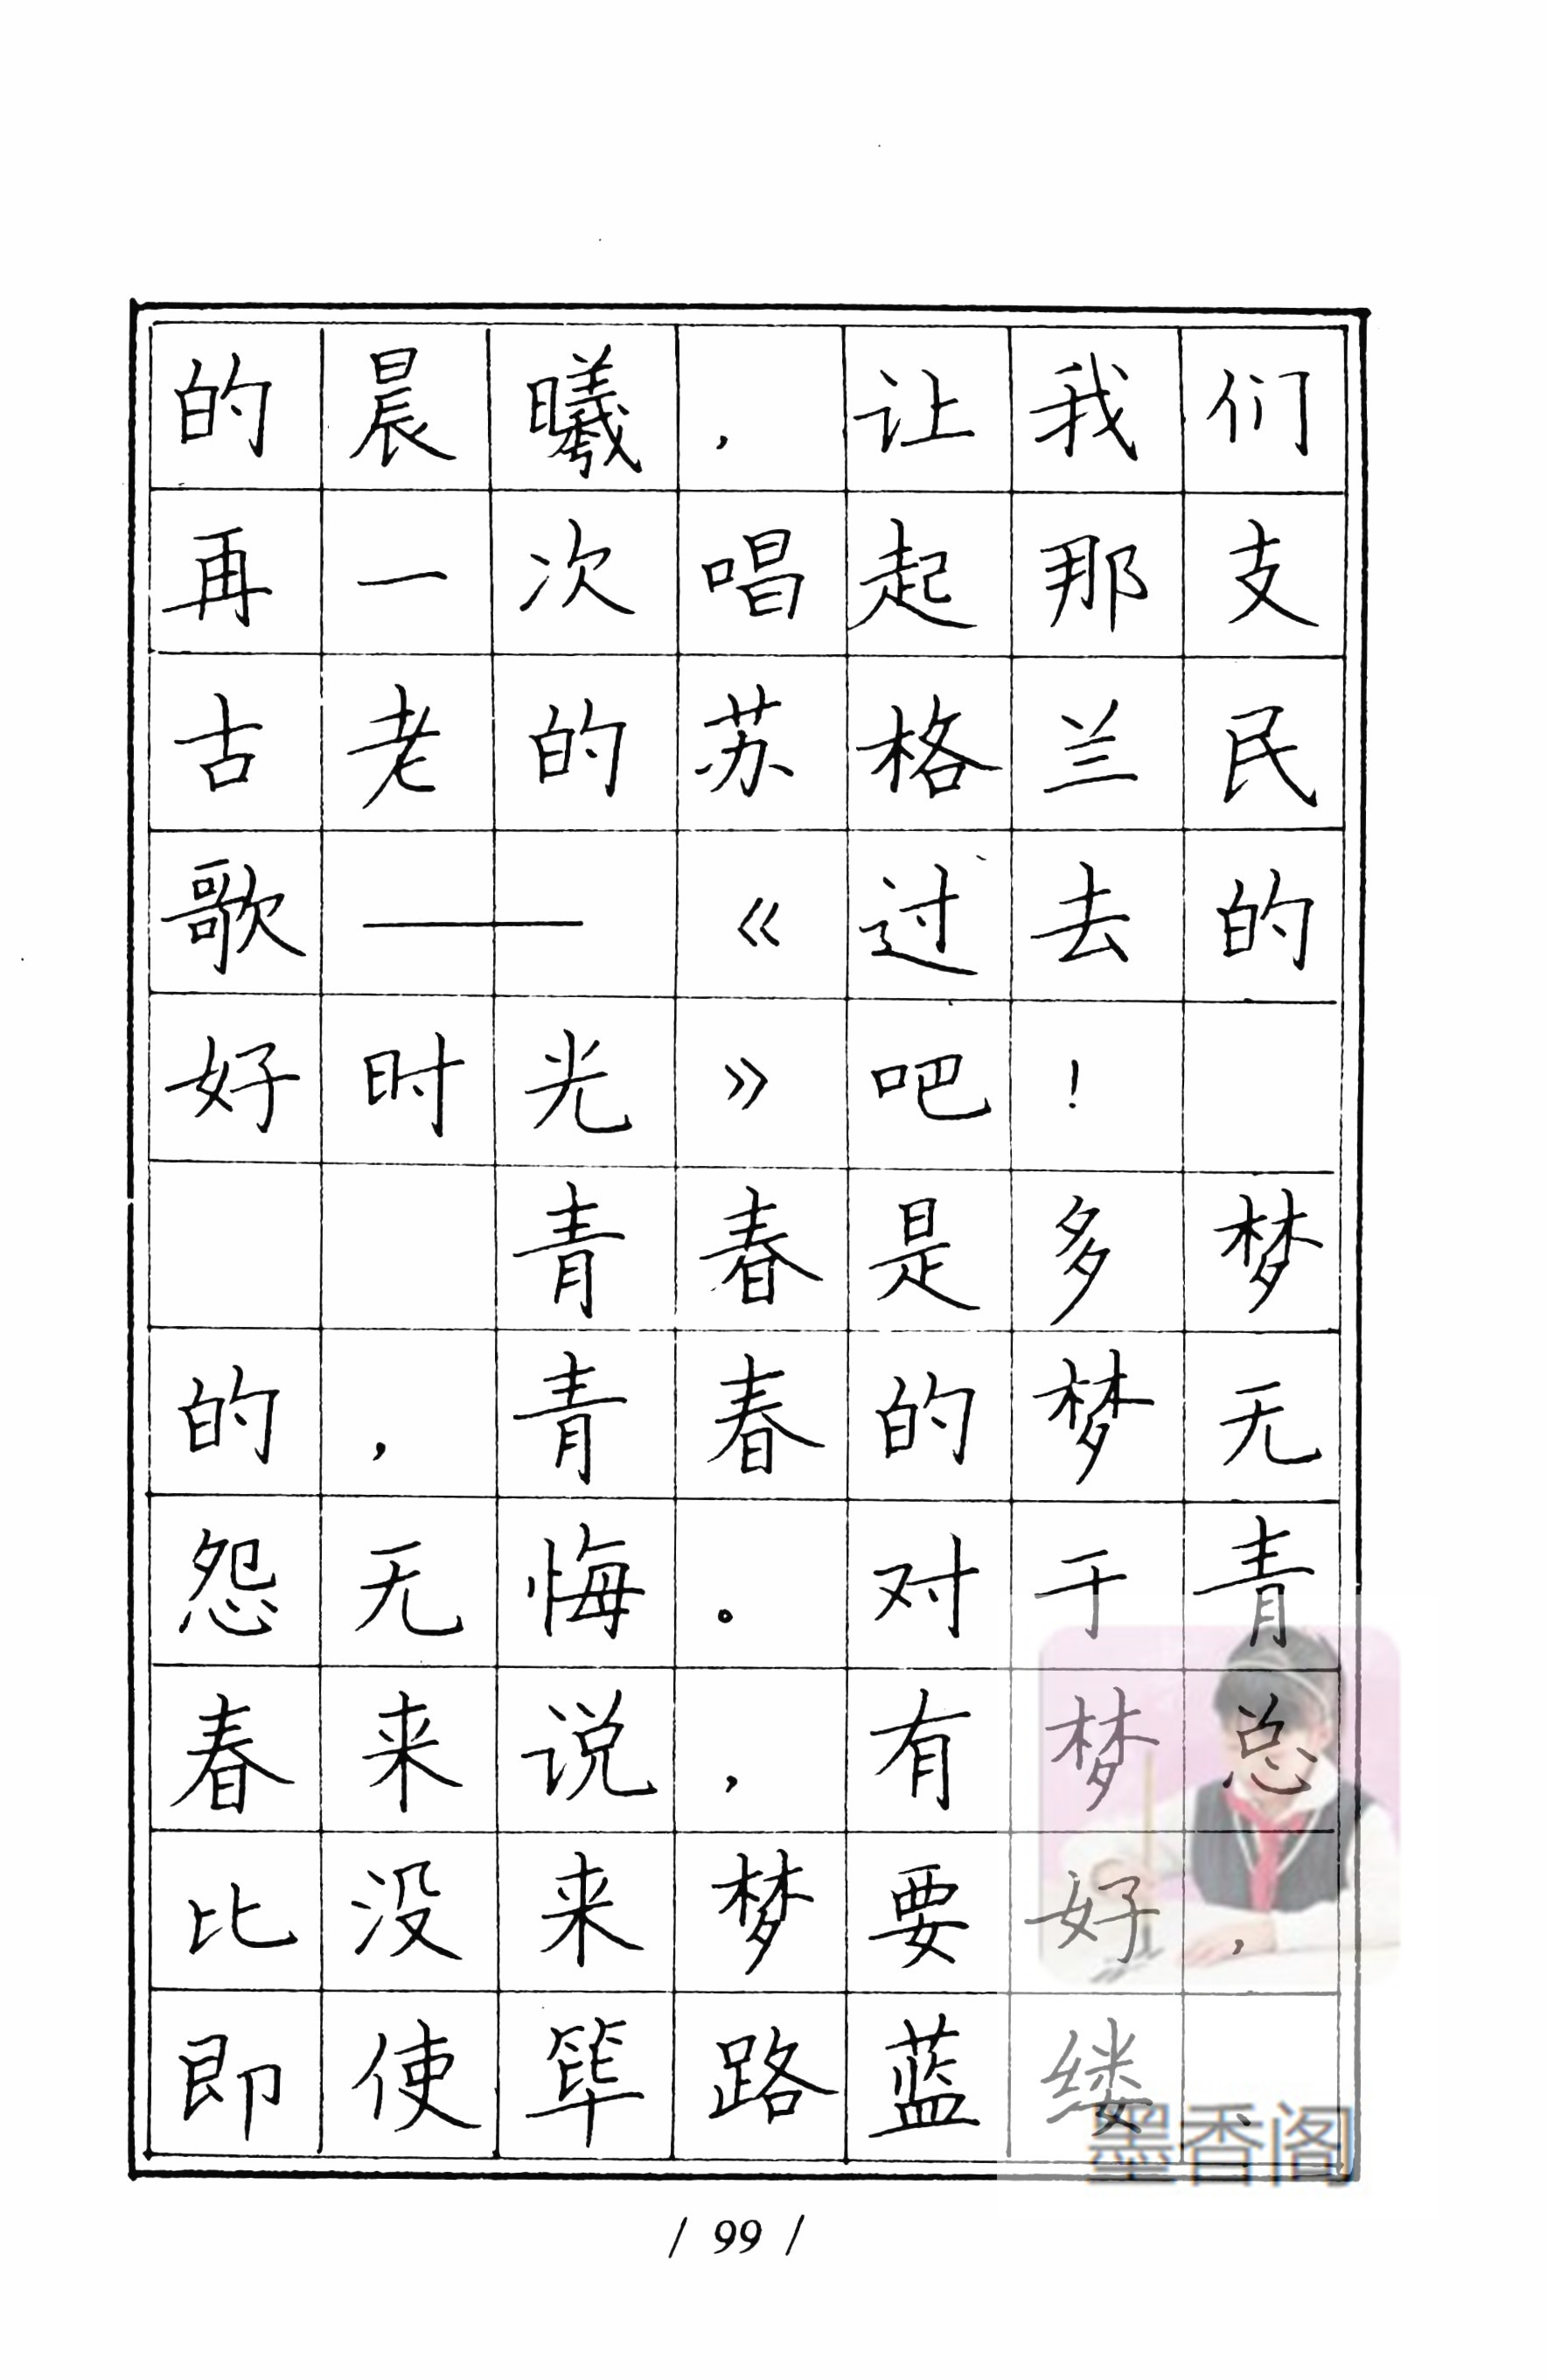 的晨曦，让我们
再一次唱起那支
古老的苏格兰民
歌——《过去的
好时光》吧！
青春是多梦
的，青春的梦无
怨无悔。对于青
春来说，有梦总
比没来梦要好，
即使筚路蓝缕，
墨香阁
/ 99 /